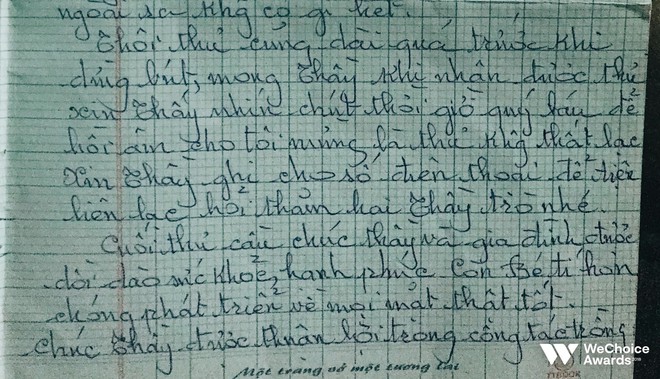 ngoài ra khg có gì hết.
Thôi thư cũng dài quá trước khi
dừng bút, mong Thầy khi nhận được thư
xin Thầy nhín chút thời giờ quý báu để
hồi âm cho tôi mừng là thư khg thất lạc
Xin Thầy ghi cho số điện thoại để tiện
liên lạc hỏi thăm hai Thầy trò nhé.
Cuối thư cầu chúc thầy và gia đình được
dồi dào sức khoẻ, hạnh phúc. Còn bé tí hon
chóng phát triển về mọi mặt thật tốt.
chúc Thầy được thuận lợi trong công tác trồng
Một trang vở một tương lai
WeChoice
Awards